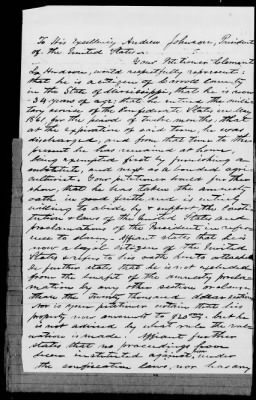 To His Excellency Andrew Johnson, President
of the United States.
Your Petitioner Clement
L. Hudson, would respectfully represent;
that he is a citizen of Carroll County
in the State of Mississippi, that he is over
34 years of age; that he entered the mili-
tary service of the Confederate States in May
1861 for the period of twelve months; that
at the expiration of said time, he was
discharged, and from that time to the
present he has remained at home,
being exempted first by furnishing a
substitute, and next as a bonded agri-
culturist. Your petitioner would further
show, that he has taken the amnesty
oath in good faith and is entirely
willing to abide by & support the Consti-
tution & laws of the United States and
proclamations of the President in refer-
ence to slavery. Affiant states that he is
now a loyal citizen of the United
States & refers to his oath hereto attached.
He further states that he is not excluded
from the benefit of the amnesty procla-
mation by any other section or clause
than the twenty thousand dollar section
nor is your petitioner certain that his
property now amounts to $20,000. but he
is not advised by what rule the valu-
ation is made. Affiant further
states that no proceedings have
been instituted against, under
the confiscation laws, nor has any